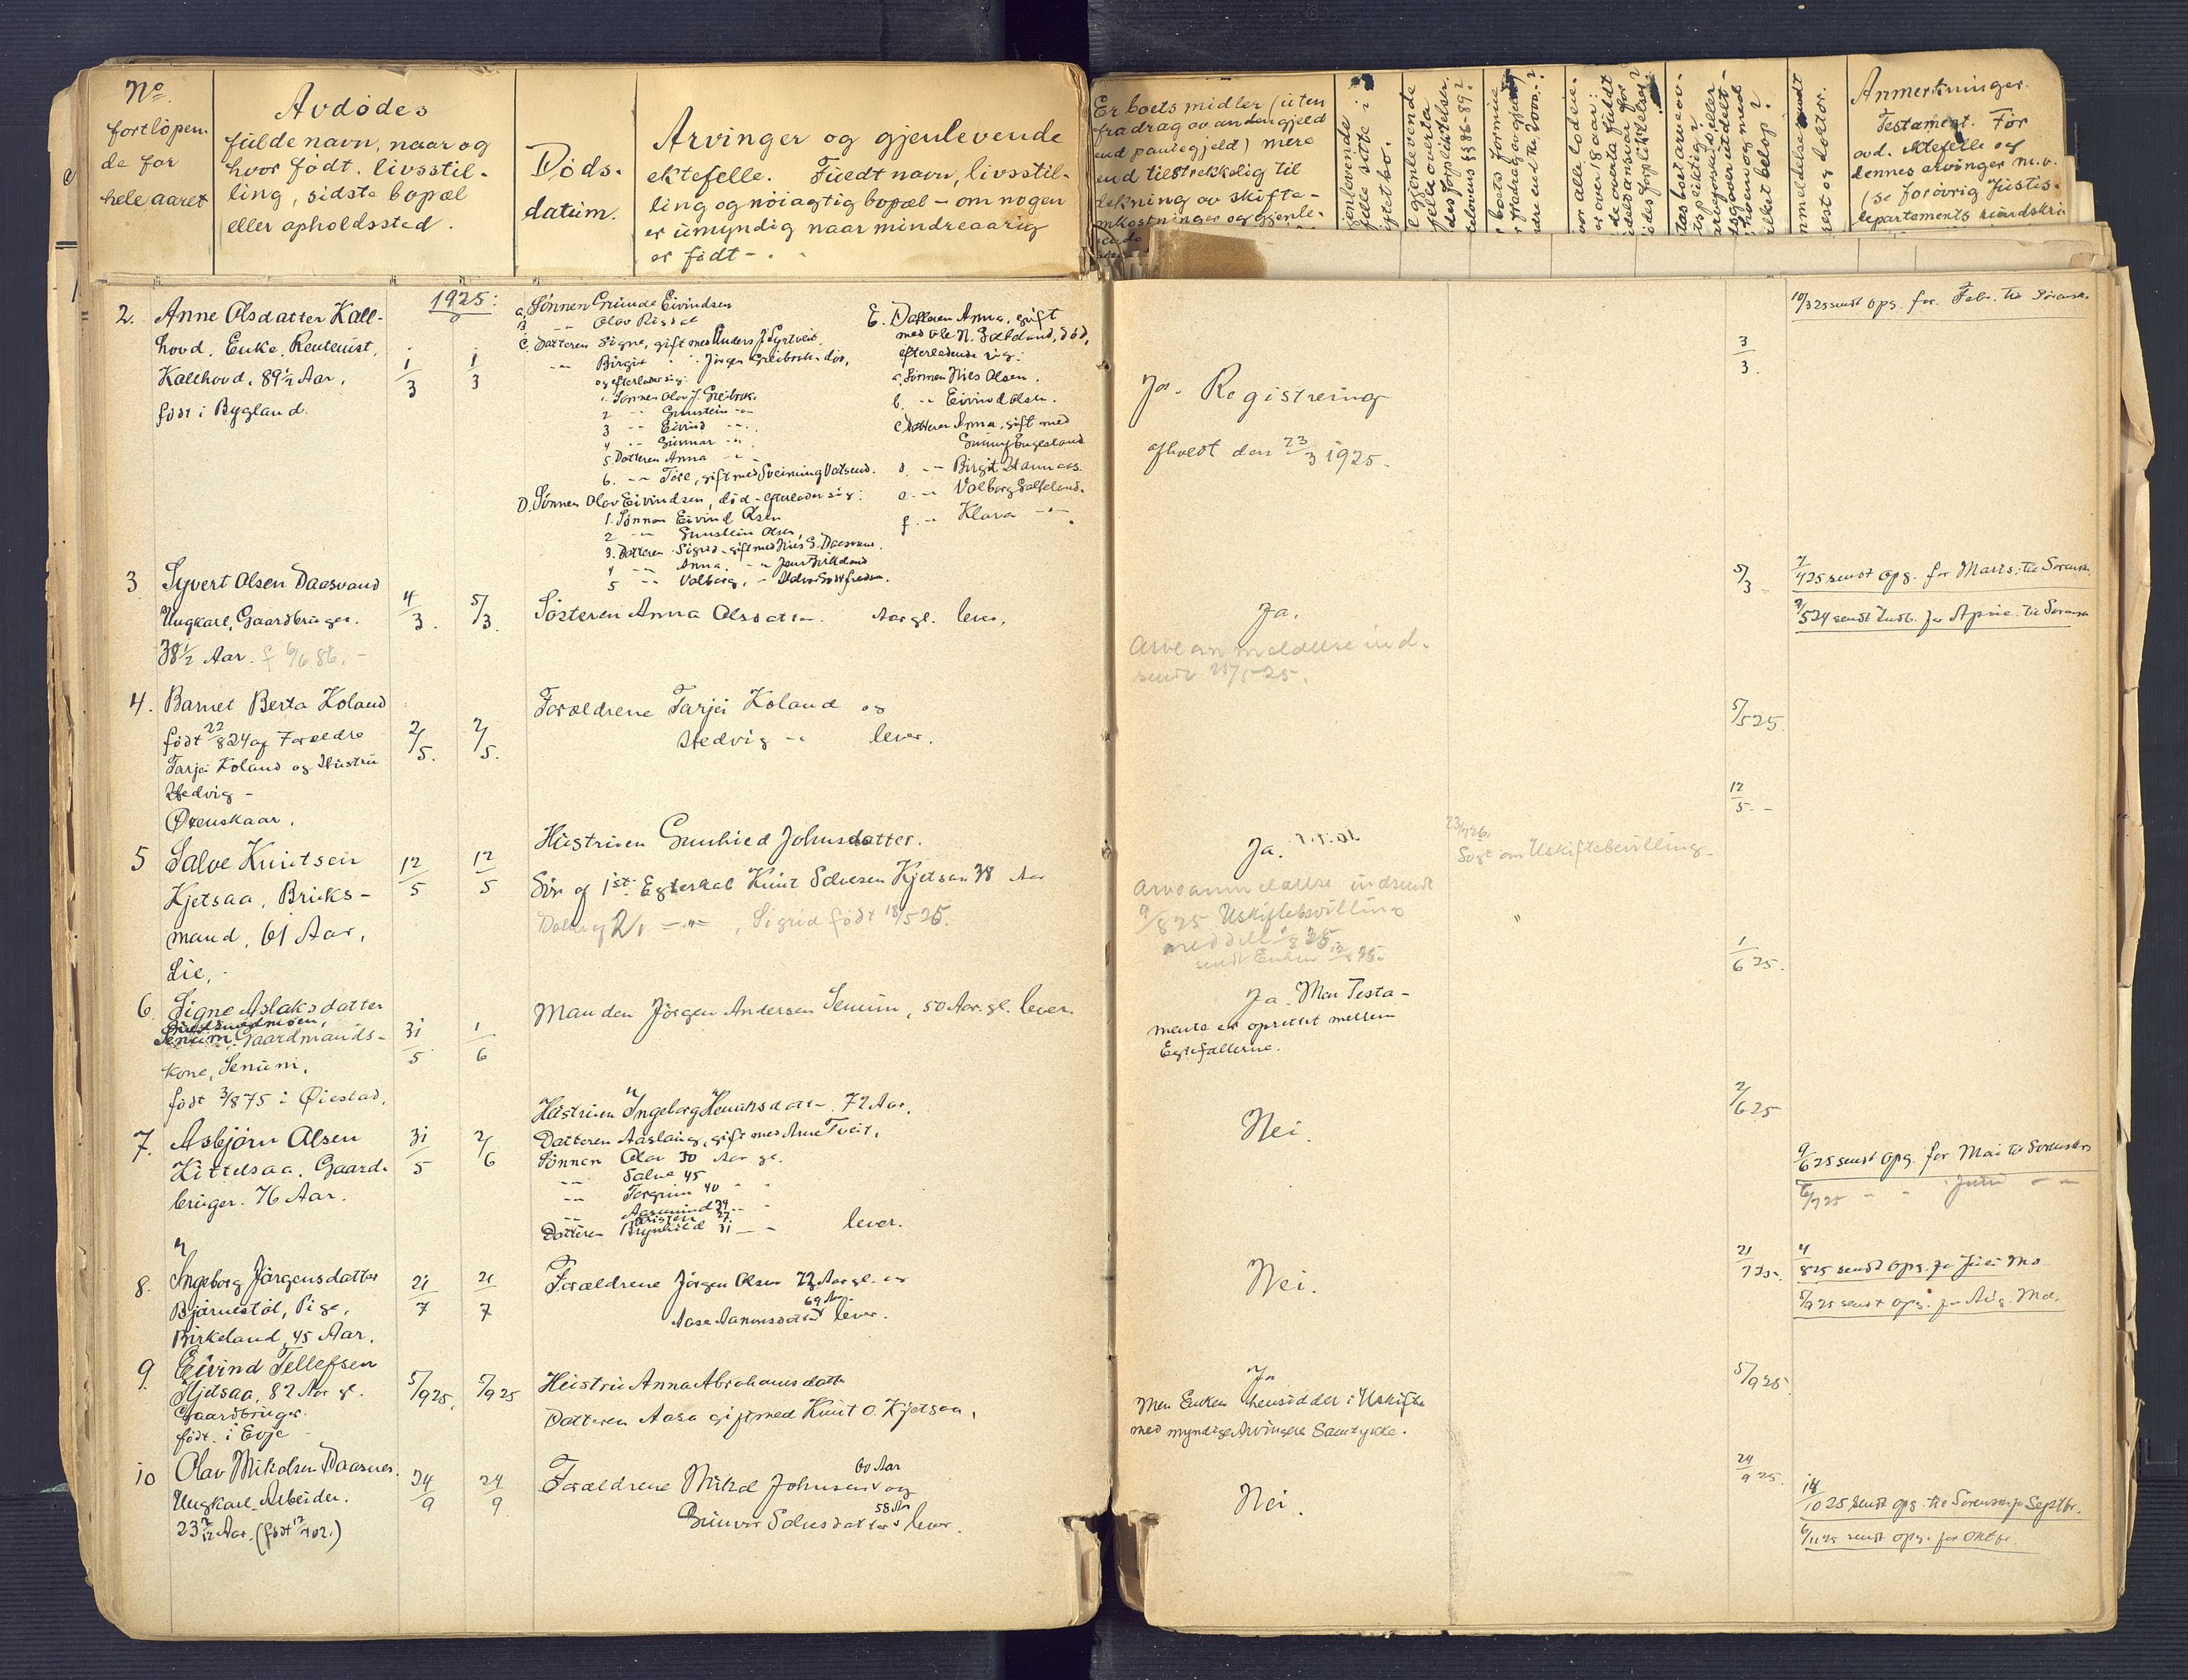 No.
fortløpen-
de for
hele aaret
Avdødes
fulde navn, naar og
hvor født. livsstil-
ling, sidste bopæl
eller opholdssted.
Døds-
datum.
Arvinger og gjenlevende
ektefelle. Fuldt navn, livsstil-
ling og nøiagtig bopæl – om nogen
er umyndig naar mindreaarig
er født –.
Er boets midler (uten
fradrag av anden gjeld
end pantegjeld) mere
end tilstrekkelig til
dekning av skifte-
omkostninger og gjenle-
Anmerkninger.
Testament. For
ad. ektefelle og
dennes arvinger m.v.
(se forøvrig Justis-
departements rundskri
1925.
2. Anne Olsdatter Kall-
hovd. Enke, Rentenist,
Kallhovd. 89½ Aar.
født i Bygland.
1/3
1/3
a. Sønnen Gunde Eivindsen
B. -"- Olav Risdal
C. Datteren Signe, gift med Anders J. Syrtveit.
-"- Birgit " " Jørgen Greibrok, død,
og efterlader sig:
1. Sønnen Olav J. Greibrok.
2 -"- Gunstein -"-
3 -"- Eivind -"-
4 -"- Gunnar -"-
5. Datteren Anna -"-
6. -"- Tore, gift med Sveinung Vatsend.
D. Sønnen Olav Eivindsen, død – efterlader sig:
1. Sønnen Eivind Olsen
2 -"- Gunstein Olsen,
3. Datteren Sigrid – gift med Nils S. Daasvand.
4 -"- Anna. -"- Jens Birkeland
5 -"- Valborg, -"-
E. Datteren Anna, gift
med Ole N. Galteland, død,
efterladende sig:
a. Sønnen Nils Olsen.
b. -"- Eivind Olsen.
c. Datteren Anna, gift med
Gunuf Engesland
d. -"- Birgit Hannaas.
e. -"- Valborg Galteland.
f. -"- Klara -"-
Ja. Registrering
afholdt den 23/3 1925.
3/3.
10/3 25 sendt opg. for Febr. til Sorensk.
3 Syvert Olsen Daasvand
Ungkarl, Gaardbruger.
38½ Aar. f 6/6 86. –
4/3.
5/3.
Søsteren Anna Olsdatter. Aar gl. lever,
Ja.
Arveanmeldelse ind-
sendt 25/5-25.
5/3
7/4 25 sendt opg. for Marts, til Sorensk.
3/5 24 sendt Indb. for April til Sorensk
4. Barnet Berta Koland
født 22/8 24 af Forældre
Tarjei Koland og Hustru
Hedvig –
Øxenskaar.
2/5.
2/5.
Forældrene Tarjei Koland og
Hedvig -"- lever.
5/5 25.
12/5. –
5 Salve Knutsen
Kjetsaa, Bruks-
mand, 61 Aar,
Lie.
12/5
12/5
Hustruen Gunhild Johnsdatter.
Søn af 1ste Egteskab Knut Salvesen Kjetsaa 38 Aar
Datter af 2. -"-, Sigrid født 18/5 25.
Ja.
Arveanmeldelse indsendt
9/8 25 Uskiftebevilling
meddelt 1/8 25
sendt Enken 12/8 25.
Søgt om Uskiftebevilling.
1/6 25.
6. Signe Aslaksdatter
Senum, Gaardmands-
kone, Senum,
født 3/8 75 i Øiestad.
31/5
1/6
Manden Jørgen Andersen Senum, 50 Aar gl. lever.
Ja. Men Testa-
mente er oprettet mellem
Egtefællerne.
2/6 25
7. Asbjørn Olsen
Kittelsaa. Gaard-
bruger. 76 Aar.
31/5
2/6
Hustruen Ingeborg Henriksdatter. 72 Aar.
Datteren Aaslaug, gift med Arne Tveit,
Sønnen Olav 30 Aar gl.
-"- Salve 45
-"- Torgrim 40 " "
-"- Aasmund 34 -"-
Kristen 27
Datteren Brynhild 31 -"- lever.
Nei.
9/6 25 sendt opg. for Mai til Sorenskr
6/7 25 " " Juni -"-
8. Ingeborg Jørgensdatter
Bjørnestøl, Pige,
Birkeland, 45 Aar.
21/7
21/7
Forældrene Jørgen Olsen 72 Aar gl. og
69 Aar
Aase Aanonsdatter lever.
Nei.
21/7 25.
4/8 25 sendt opg. for Juli Md
5/9 25 sendt opg. for Aug. Md.
9. Eivind Tellefsen
Kjetsaa, 82 Aar gl.
Gaardbruger.
født i Evje
5/9 25,
5/9 25
Hustru Anna Abrahamsdatter
Datteren Aasa gift med Knut O. Kjetsaa.
Ja
Men Enken hensidder i Uskifte
med myndige Arvingers Samtykke.
5/9 25
10 Olav Mikalsen Daasnes.
Ungkarl. Arbeider.
23 7/12 Aar. (født 12/2 02.)
24/9
24/9.
60 Aar
Forældrene Mikal Johnsen og
58 Aar
Gunvor Salvesdatter lever.
Nei.
24/9 25.
14/10 25 sendt opg. til Sorenskr. for Septbr.
6/11 25 sendt opg. for Oktbr.